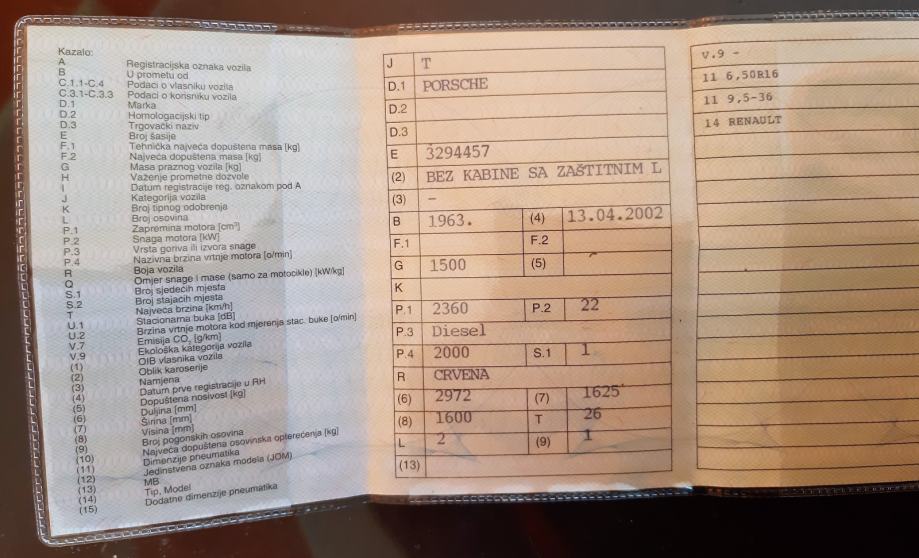 Kazalo:
A Registracijska oznaka vozila
B U prometu od
C.1.1-C.4 Podaci o vlasniku vozila
C.3.1-C.3.3 Podaci o korisniku vozila
D.1 Marka
D.2 Homologacijski tip
D.3 Trgovački naziv
E Broj šasije
F.1 Tehnička najveća dopuštena masa [kg]
F.2 Najveća dopuštena masa [kg]
G Masa praznog vozila [kg]
H Važenje prometne dozvole
I Datum registracije reg. oznakom pod A
J Kategorija vozila
K Broj tipnog odobrenja
L Broj osovina
P.1 Zapremina motora [cm³]
P.2 Snaga motora [kW]
P.3 Vrsta goriva ili izvora snage
P.4 Nazivna brzina vrtnje motora [o/min]
R Boja vozila
Q Omjer snage i mase (samo za motocikle) [kW/kg]
S.1 Broj sjedećih mjesta
S.2 Broj stajaćih mjesta
T Najveća brzina [km/h]
U.1 Stacionarna buka [dB]
U.2 Brzina vrtnje motora kod mjerenja stac. buke [o/min]
V.7 Emisija CO₂ [g/km]
V.9 Ekološka kategorija vozila
(1) OIB vlasnika vozila
(2) Oblik karoserije
(3) Namjena
(4) Datum prve registracije u RH
(5) Dopuštena nosivost [kg]
(6) Duljina [mm]
(7) Širina [mm]
(8) Visina [mm]
(9) Broj pogonskih osovina
(10) Najveća dopuštena osovinska opterećenja [kg]
(11) Dimenzije pneumatika
(12) Jedinstvena oznaka modela (JOM)
(13) MB
(14) Tip, Model
(15) Dodatne dimenzije pneumatika
J T
D.1 PORSCHE
D.2
D.3
E 3294457
(2) BEZ KABINE SA ZAŠTITNIM L
(3) –
B 1963. (4) 13.04.2002
F.1 F.2
G 1500 (5)
K
P.1 2360 P.2 22
P.3 Diesel
P.4 2000 S.1 1
R CRVENA
(6) 2972 (7) 1625
(8) 1600 T 26
L 2 (9) 1
(13)
V.9 -
11 6,50R16
11 9,5-36
14 RENAULT